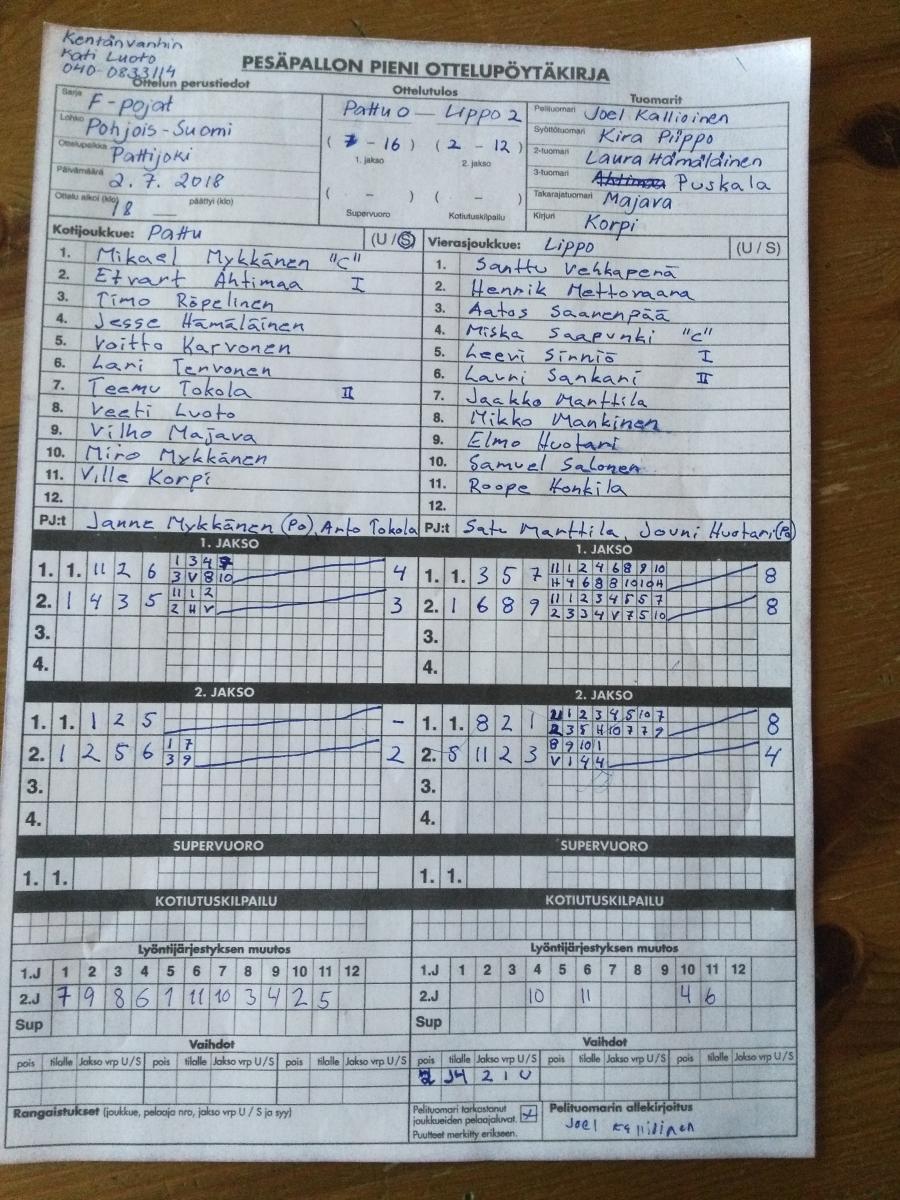 Kentänvanhin
Kati Luoto
040-0833114
PESÄPALLON PIENI OTTELUPÖYTÄKIRJA
Ottelun perustiedot
Sarja F-pojat
Lohko Pohjois-Suomi
Ottelupaikka Pattijoki
Päivämäärä 2.7.2018
Ottelu alkoi (klo) 18 päättyi (klo)
Ottelutulos
Pattu 0 — Lippo 2
( 7 - 16 ) ( 2 - 12 )
1. jakso 2. jakso
( - ) ( - )
Supervuoro Kotiutuskilpailu
Tuomarit
Pelituomari Joel Kallioinen
Syöttötuomari Kira Piippo
2-tuomari Laura Hämäläinen
3-tuomari Puskala
Takarajatuomari Majava
Kirjuri Korpi
Kotijoukkue: Pattu (U / S)
1. Mikael Mykkänen "C"
2. Etvart Ahtimaa I
3. Timo Röpelinen
4. Jesse Hämäläinen
5. Voitto Karvonen
6. Lari Tervonen
7. Teemu Tokola II
8. Veeti Luoto
9. Vilho Majava
10. Miro Mykkänen
11. Ville Korpi
12.
PJ:t Janne Mykkänen (Po), Anto Tokola
Vierasjoukkue: Lippo (U / S)
1. Santtu Vehkaperä
2. Henrik Mettovaara
3. Aatos Saarenpää
4. Miska Saapunki "C"
5. Leevi Sinniö I
6. Lauri Sankari II
7. Jaakko Marttila
8. Mikko Mankinen
9. Elmo Huotari
10. Samuel Salonen
11. Roope Honkila
12.
PJ:t Satu Marttila, Jouni Huotari (Po)
1. JAKSO
1. 1. 11 2 6 1 3 4 7 4
3 V 8 10
2. 1 4 3 5 11 1 2 3
2 H V
3.
4.
1. JAKSO
1. 1. 3 5 7 11 1 2 4 6 8 9 10 8
H 4 6 8 8 10 10 H
2. 1 6 8 9 11 1 2 3 4 5 5 7 8
2 3 3 4 V 7 5 10
3.
4.
2. JAKSO
1. 1. 1 2 5 -
2. 1 2 5 6 1 7 2
3 9
3.
4.
2. JAKSO
1. 1. 8 2 1 11 1 2 3 4 5 10 7 8
2 3 5 H 10 7 7 9
2. 5 11 2 3 8 9 10 1 4
V 1 4 4
3.
4.
SUPERVUORO
1. 1.
SUPERVUORO
1. 1.
KOTIUTUSKILPAILU
KOTIUTUSKILPAILU
Lyöntijärjestyksen muutos
1.J 1 2 3 4 5 6 7 8 9 10 11 12
2.J 7 9 8 6 1 11 10 3 4 2 5
Sup
Lyöntijärjestyksen muutos
1.J 1 2 3 4 5 6 7 8 9 10 11 12
2.J 10 11 4 6
Sup
Vaihdot
pois tilalle Jakso vrp U / S pois tilalle Jakso vrp U/S pois tilalle Jakso vrp U / S
Vaihdot
pois tilalle Jakso vrp U / S pois tilalle Jakso vrp U/S pois tilalle Jakso vrp U / S
2 1 U
Rangaistukset (joukkue, pelaaja nro, jakso vrp U / S ja syy)
Pelituomari tarkastanut
joukkueiden pelaajaluvat. x
Puutteet merkitty erikseen.
Pelituomarin allekirjoitus
Joel Kallioinen